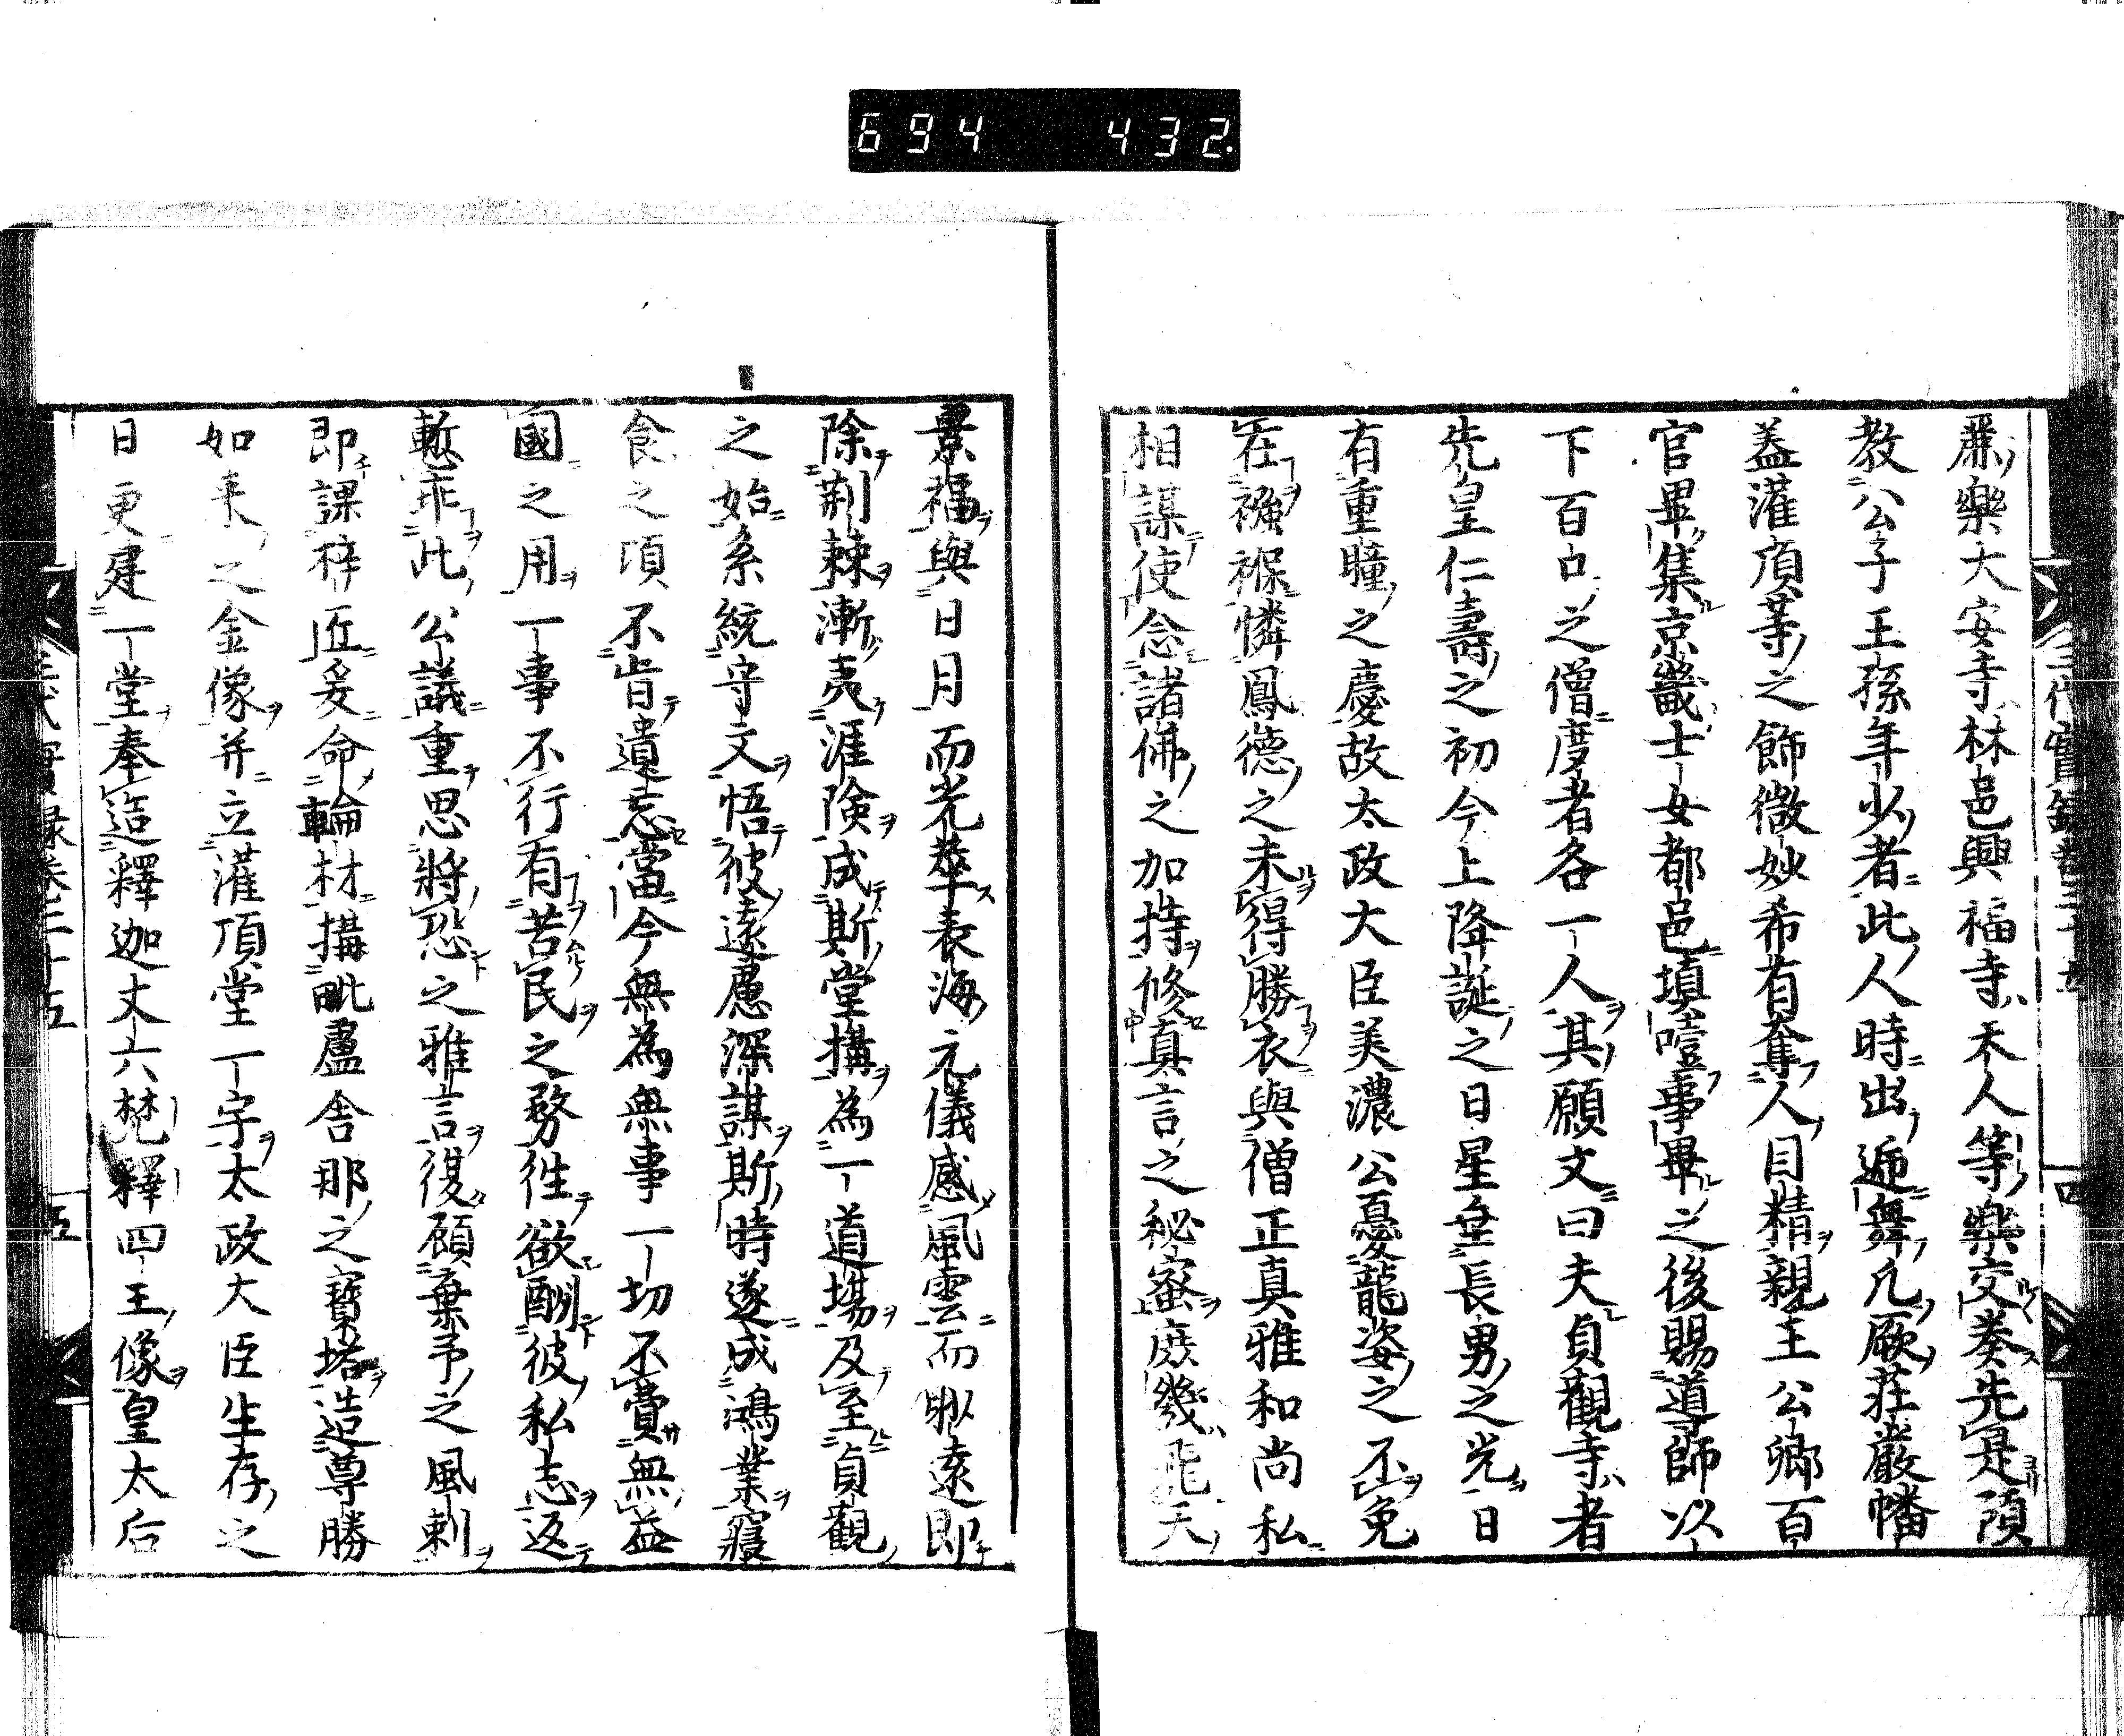 694 432.
䔥樂大安寺林邑興福寺天人等樂交奏先是預
教公子王孫年少者此人時出逓舞凡厥莊嚴幡
盖灌頂等之飾微妙希有奪人目精親王公卿百
官畢集京畿士女都邑填噎事畢之後賜導師以
下百口之僧度者各一人其願文曰夫貞觀寺者
先皇仁壽之初今上降誕之日星垂長男之光日
有重瞳之慶故太政大臣美濃公憂龍姿之不免
在襁褓憐鳳德之未得勝衣與僧正真雅和尚私
相謀使念諸佛之加持修真言之秘密庶幾飛天
景福與日月而光華表海元儀感風雲而眇遠即
除荊棘漸夷涯険成斯堂搆為一道場及至貞觀
之始系統守文悟彼遠慮深謀斯時遂成鴻業寢
食之項不肯遺忘當今無為無事一切不費無益
國之用一事不行有苦民之務徃欲酬彼私志返
慙乖此公議重思將恐之雅言復顧棄予之風刺
即課梓匠爰命輪材搆毗盧舎那之寳塔造尊勝
如来之金像并立灌頂堂一宇太政大臣生存之
日更建一堂奉造釋迦丈六梵釋四王像皇太后
三代實録卷二十五
五
四